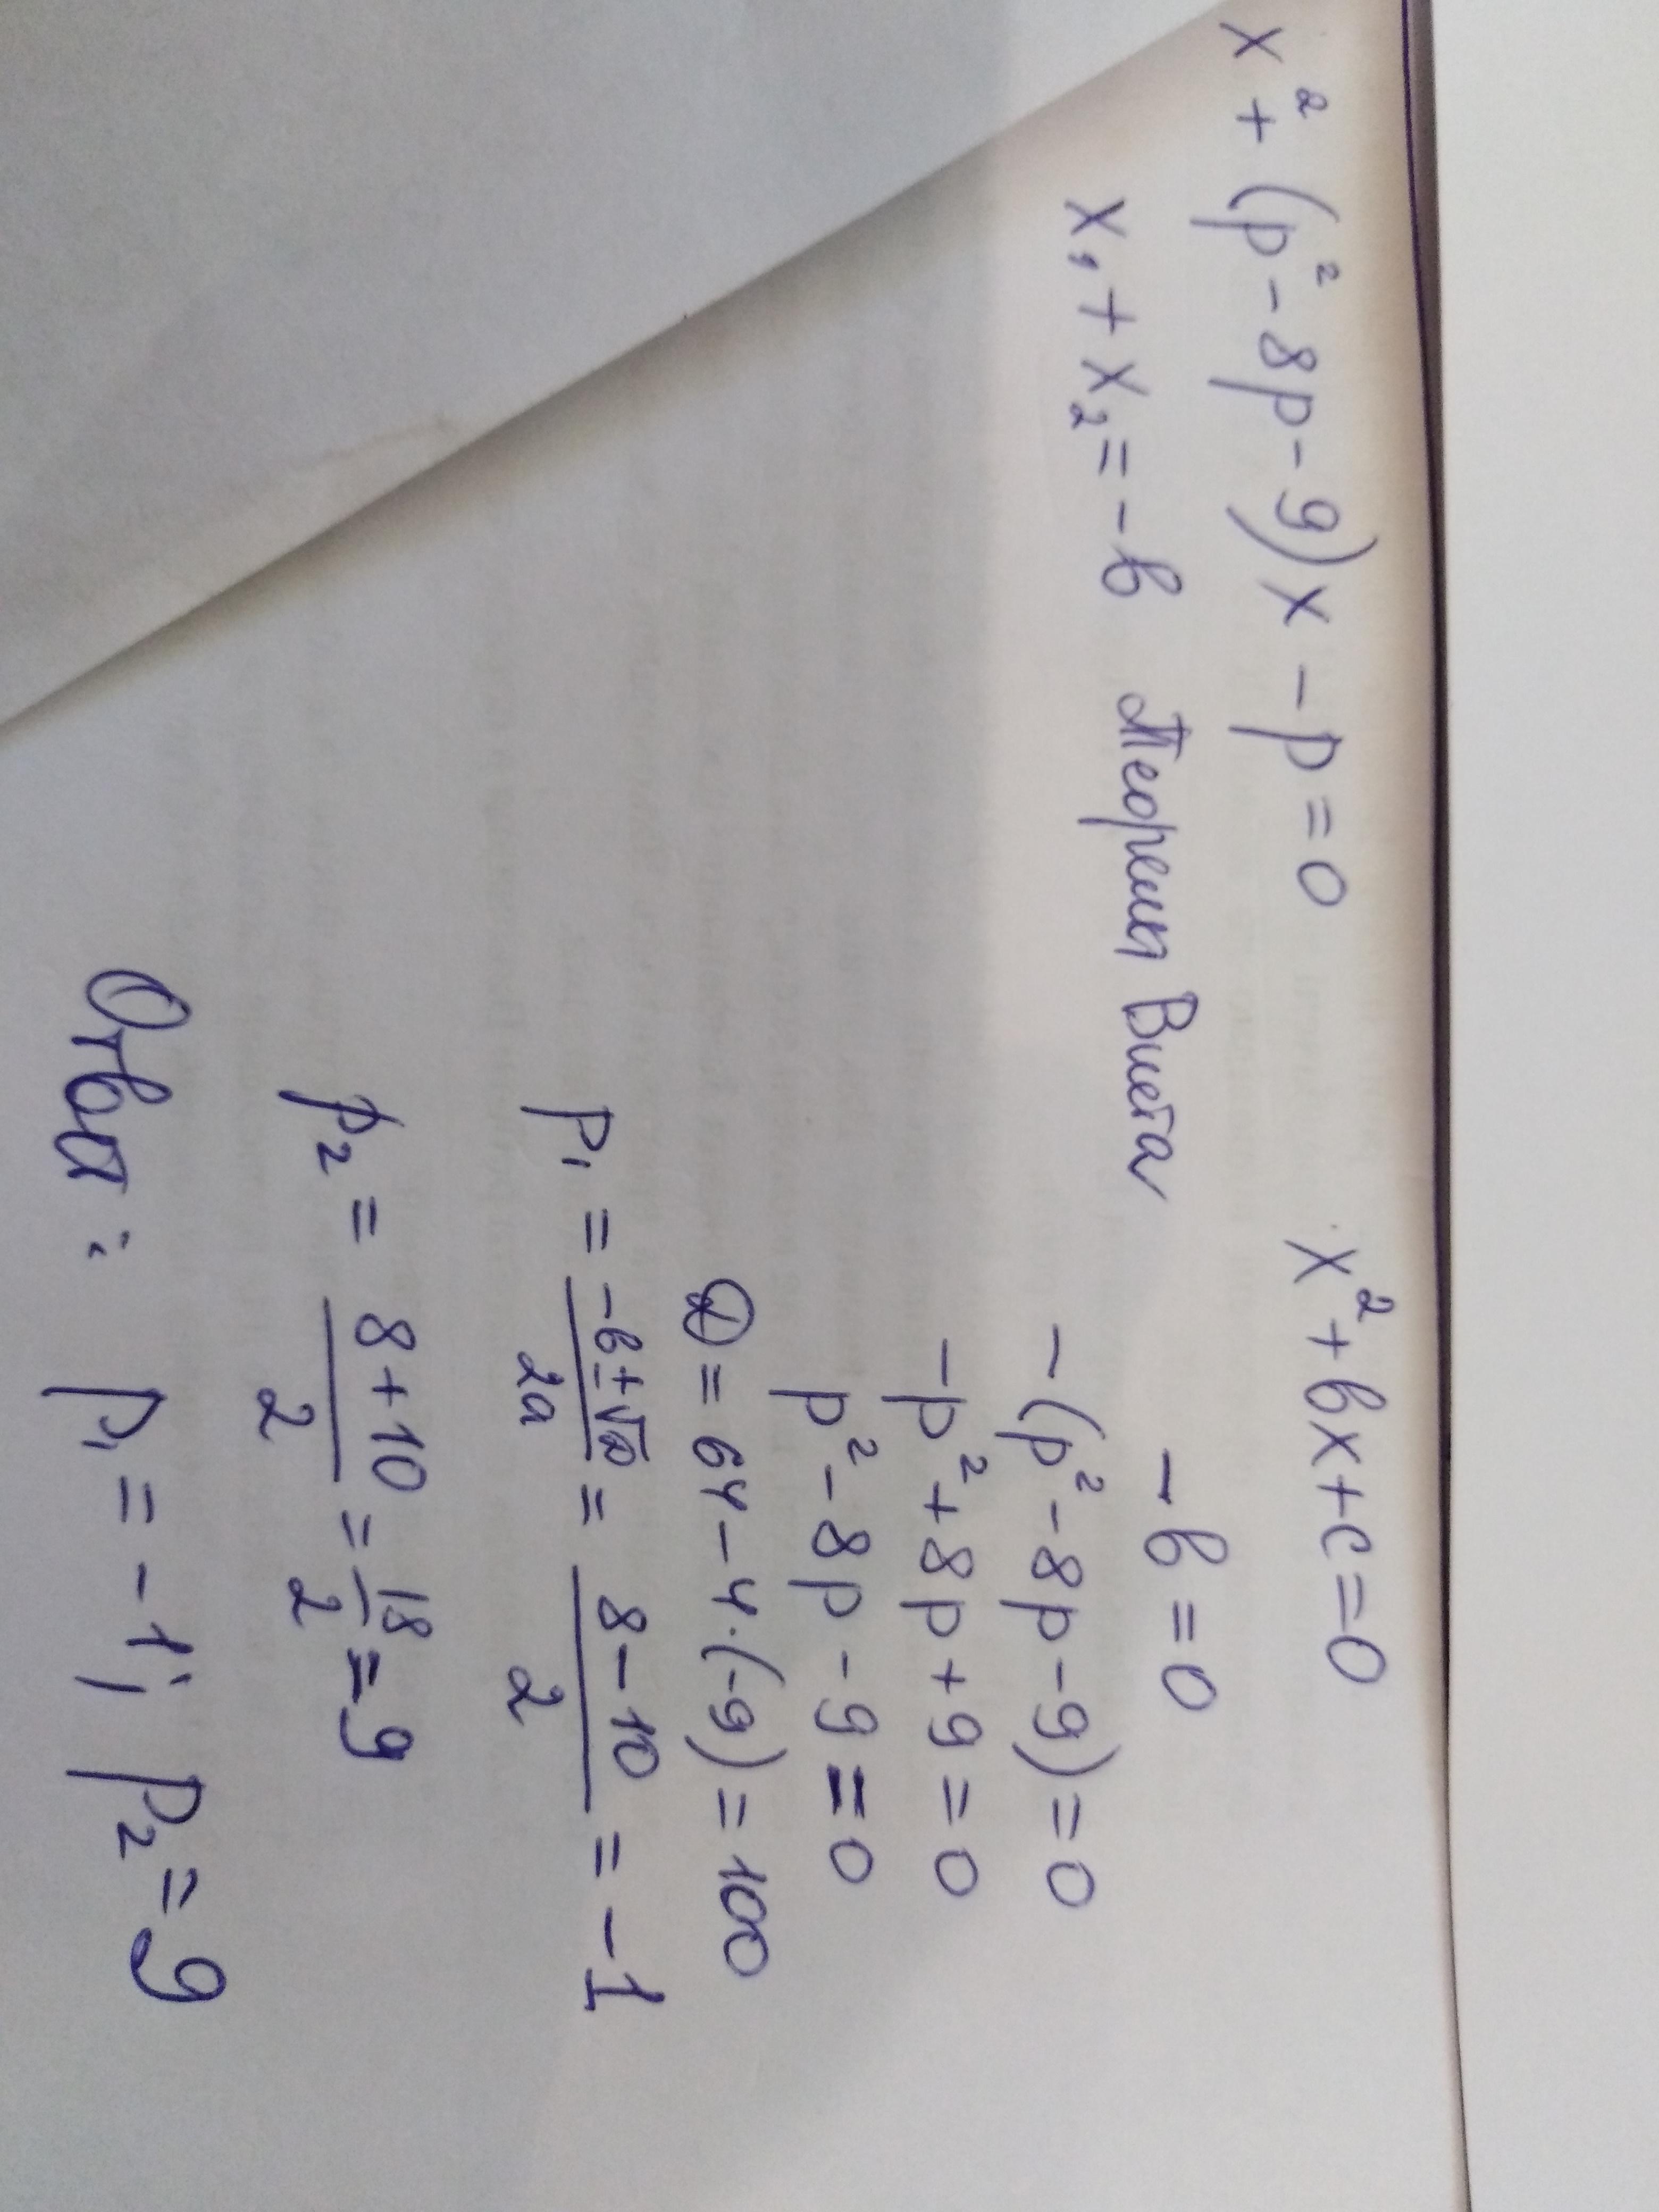 x² + (p² - 8p - 9)x - p = 0
x² + bx + c = 0
x₁ + x₂ = -b Теорема Виета
- b = 0
- (p² - 8p - 9) = 0
-p² + 8p + 9 = 0
p² - 8p - 9 = 0
D = 64 - 4·(-9) = 100
p₁ = (-b ± √D)/2a = (8 - 10)/2 = -1
p₂ = (8 + 10)/2 = 18/2 = 9
Ответ: p₁ = -1; p₂ = 9